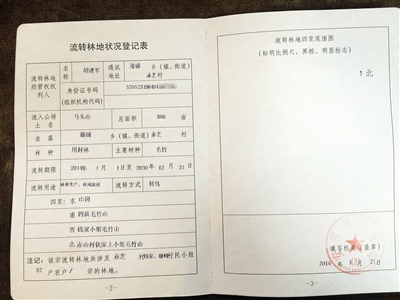 流转林地状况登记表
流转林地经营权权利人 名称 胡建军 通讯地址 塘铺 乡(镇、街道) 赤芝 村
身份证号码(组织机构代码)
流入山场土名 马头山 总面积 996 亩
坐落 塘铺 乡(镇、街道) 赤芝 村
林种 用材林 主要树种 毛竹
流转期限 2014年1月1日至2030年12月31日
流转用途 流转方式 转包
四至:东 山岗
南 四队毛竹山
西 钱家小组毛竹山
北 赤山村钱家上小组毛竹山
注记:该宗流转林地共涉及 赤芝 村 钱家、 村民小组
57 户农户 宗的林地。
-2-
流转林地四至范围图
(标明比例尺、界桩、明显标志)
↑北
填写机关(盖章)
2016年 月21日
-3-